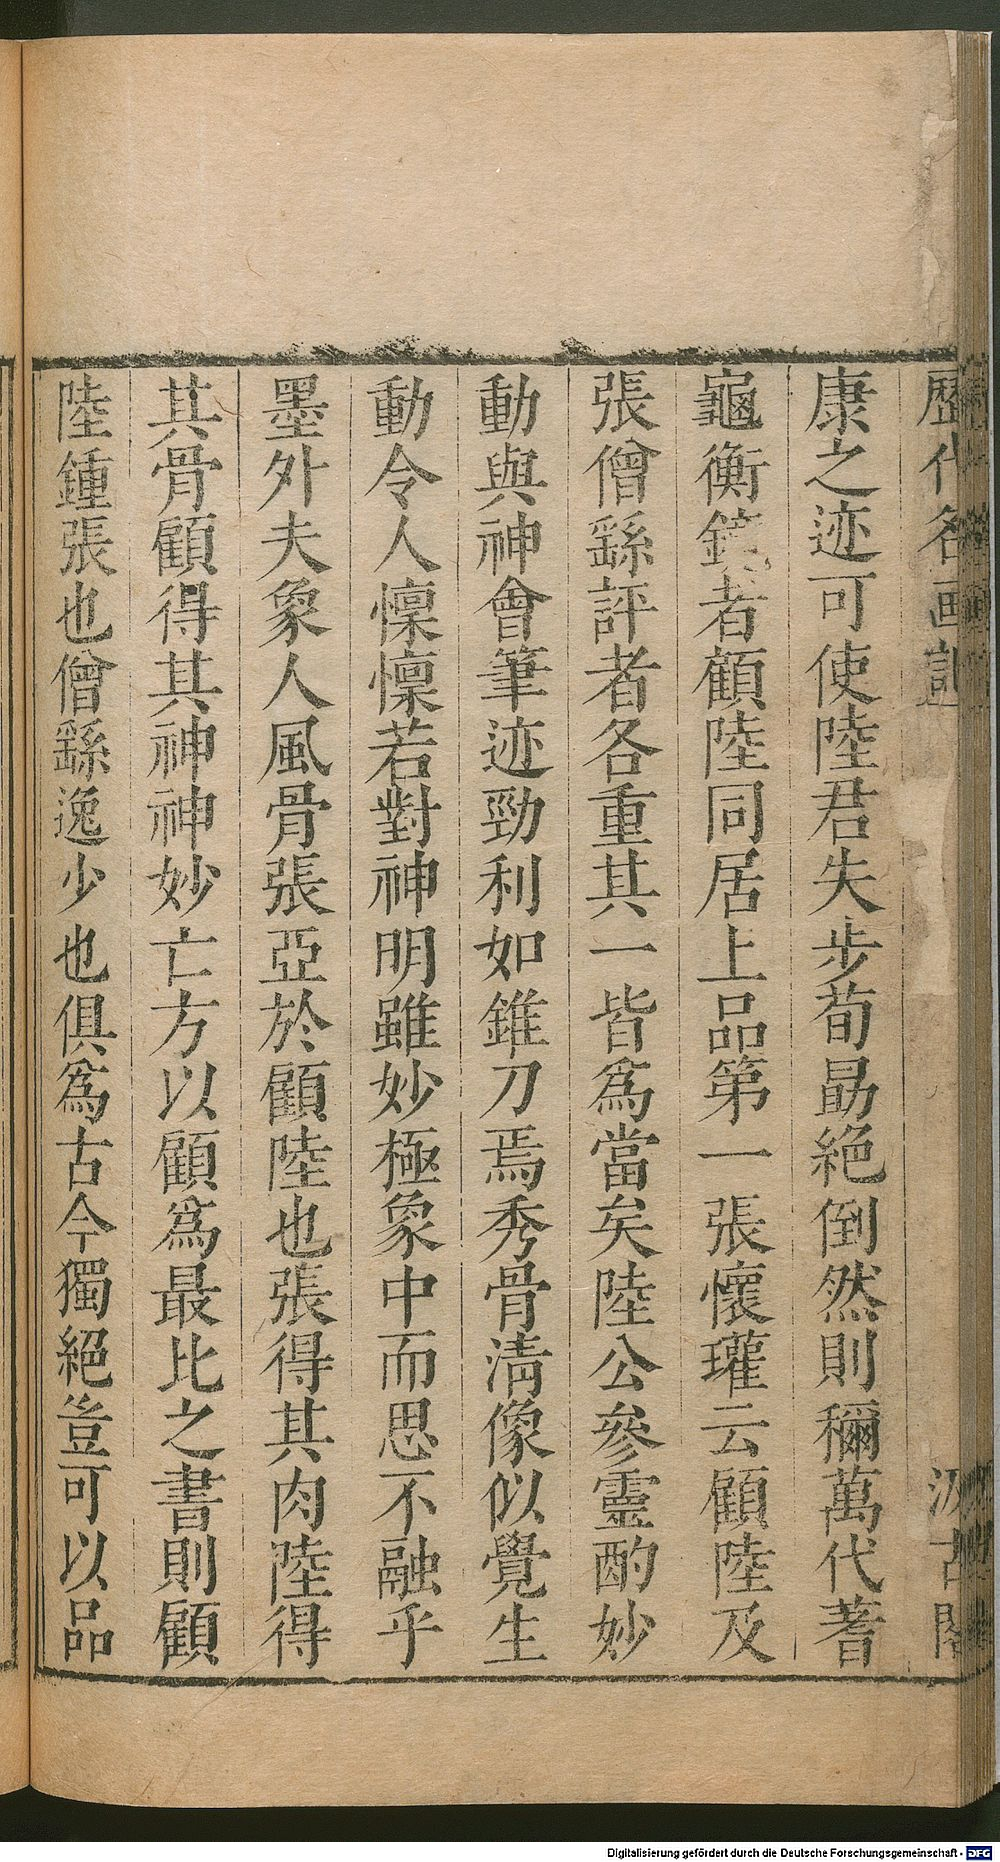 歷代名畫記 汲古閣
康之迹可使陸君失步荀勗絕倒然則穪萬代蓍
龜衡鏡者顧陸同居上品第一 張懷瓘云顧陸及
張僧繇評者各重其一皆爲當矣陸公參靈酌妙
動與神會筆迹勁利如錐刀焉秀骨清像似覺生
動令人懍懍若對神明雖妙極象中而思不融乎
墨外夫象人風骨張亞於顧陸也張得其肉陸得
其骨顧得其神神妙亡方以顧爲最比之書則顧
陸鍾張也僧繇逸少也俱爲古今獨絕豈可以品
Digitalisierung gefördert durch die Deutsche Forschungsgemeinschaft - DFG